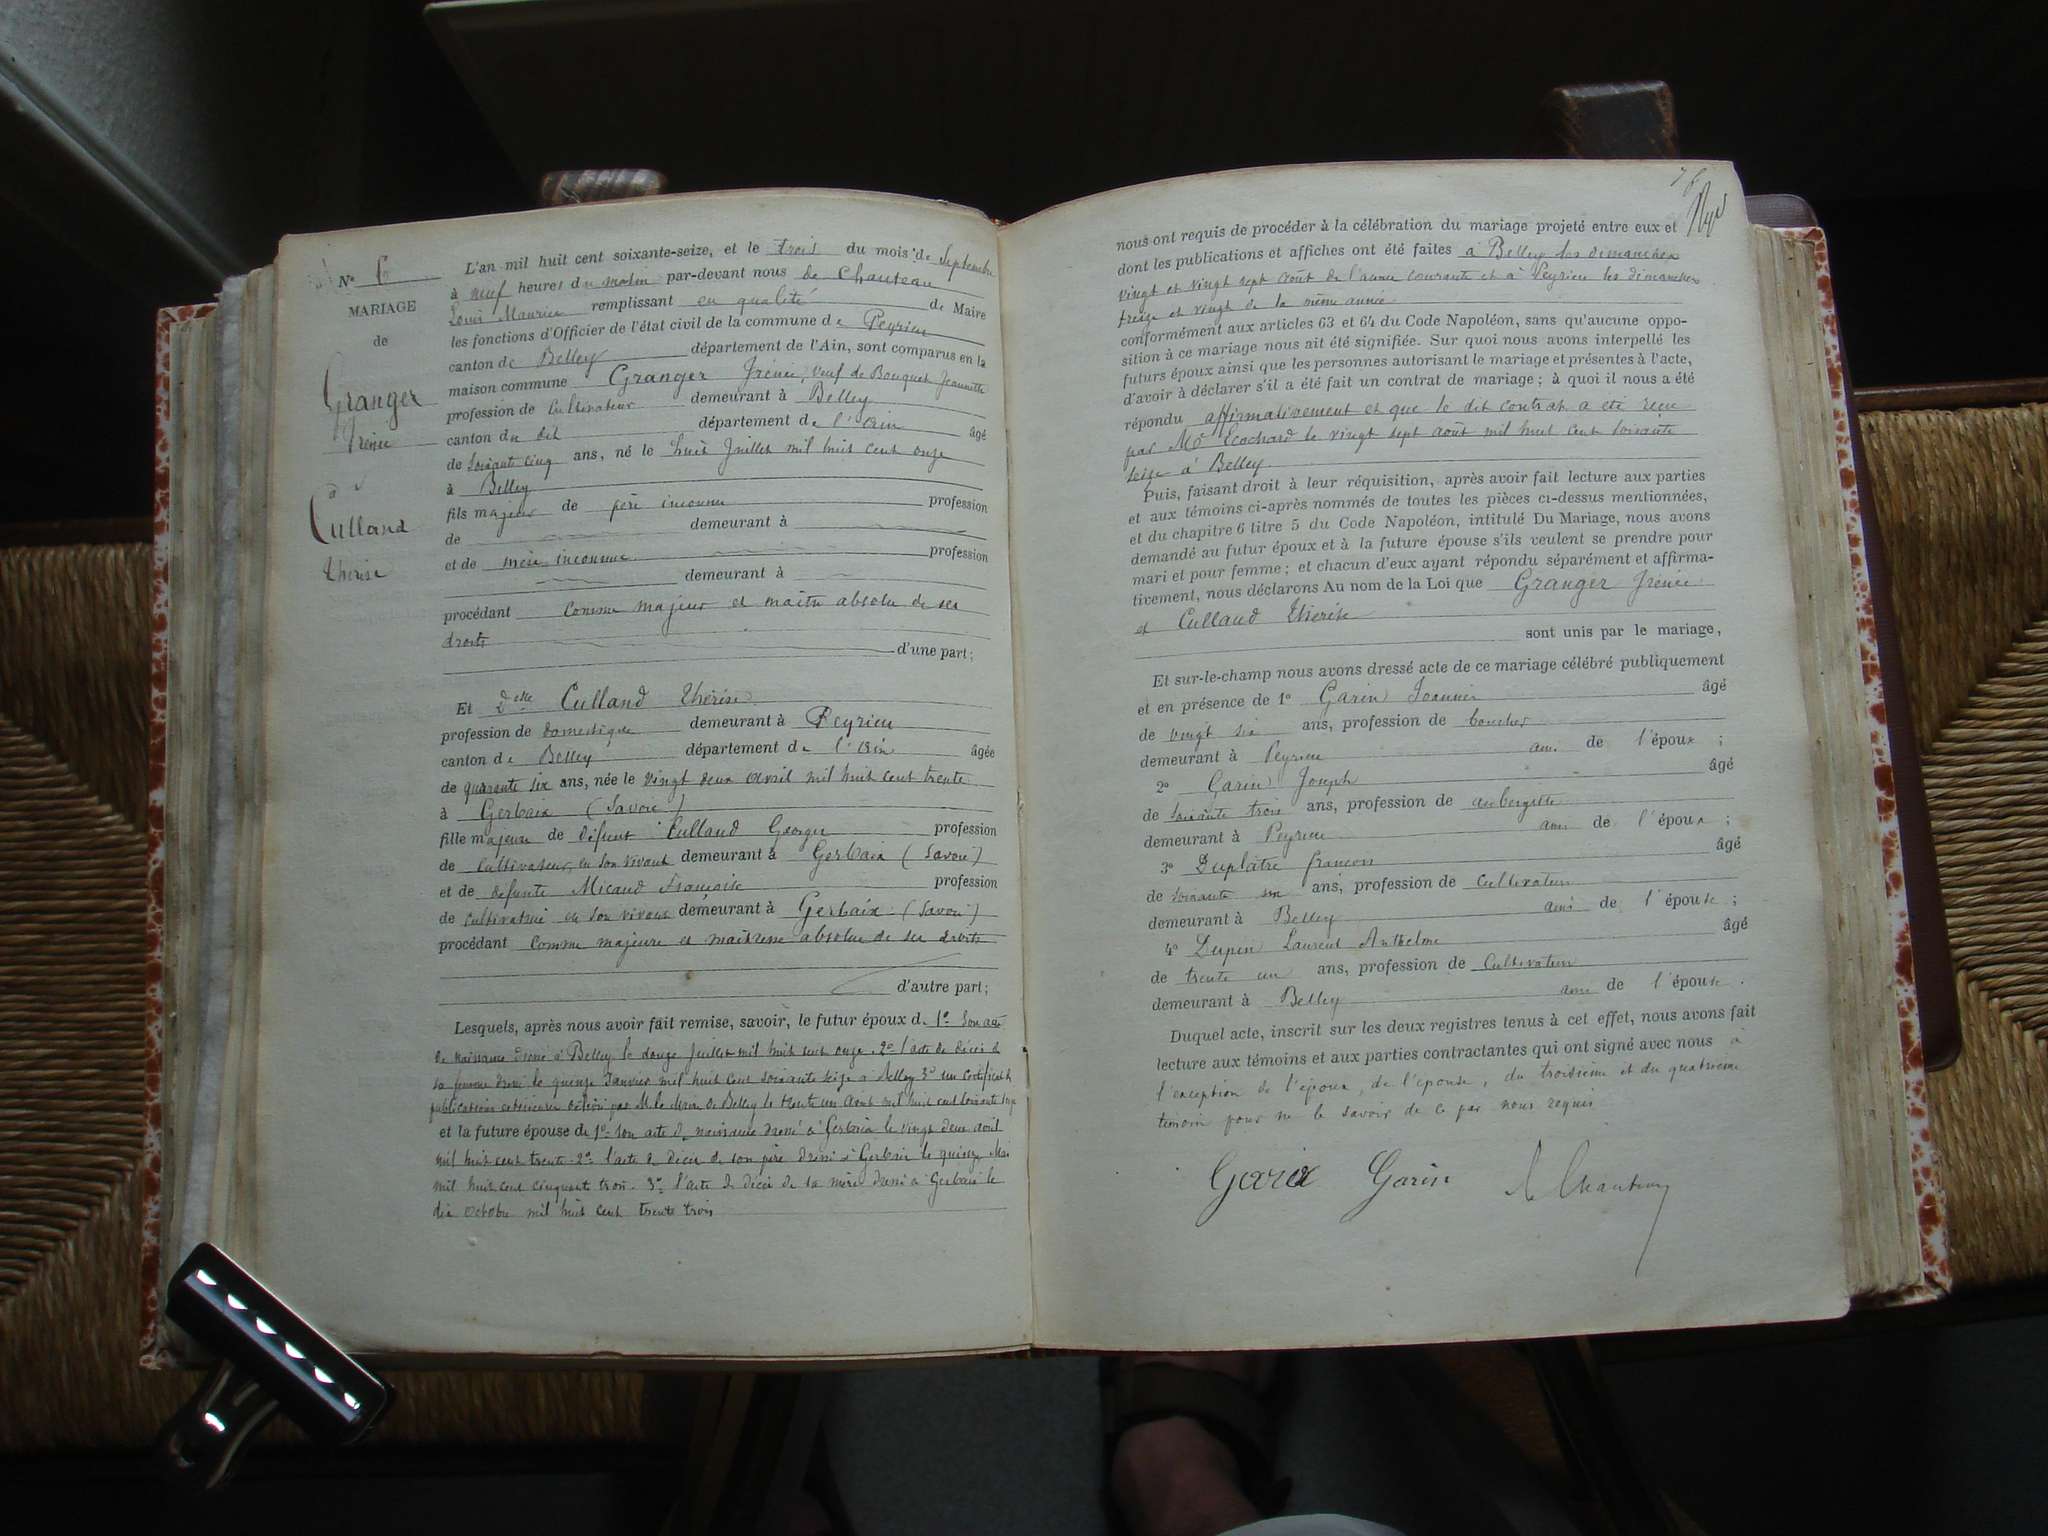 N° 6
MARIAGE
de
Granger
Irénée
à
Culland
thérèse
L'an mil huit cent soixante-seize, et le trois du mois de Septembre
à neuf heures du matin par-devant nous de Chauteau
Louis Maurice remplissant en qualité de Maire
les fonctions d'Officier de l'état civil de la commune de Peyrieu
canton de Belley département de l'Ain, sont comparus en la
maison commune Granger Irénée, veuf de Bouquet Jeannette
profession de Cultivateur demeurant à Belley
canton du dit département de l'Ain âgé
de Soixante cinq ans, né le huit Juillet mil huit cent onze
à Belley
fils majeur de père inconnu profession
de demeurant à
et de mère inconnue profession
demeurant à
procédant comme majeur et maître absolu de ses
droits
d'une part;
Et Delle Culland thérèse
profession de domestique demeurant à Peyrieu
canton de Belley département de l'Ain âgée
de quarante six ans, née le vingt deux avril mil huit cent trente
à Gerbaix (Savoie)
fille majeure de défunt Culland George profession
de Cultivateur, en son vivant demeurant à Gerbaix (Savoie)
et de défunte Micaud Françoise profession
de cultivatrice en son vivant demeurant à Gerbaix (Savoie)
procédant comme majeure et maîtresse absolue de ses droits
d'autre part;
Lesquels, après nous avoir fait remise, savoir, le futur époux d. 1° Son acte
de naissance dressé à Belley le douze Juillet mil huit cent onze. 2° l'acte de décès de
sa femme dressé le quinze Janvier mil huit cent soixante seize a Belley 3° un certificat de
publications extérieures délivré par M. le Maire de Belley le trente un Août mil huit cent soixante seize
et la future épouse de 1° son acte de naissance dressé à Gerbaix le vingt deux avril
mil huit cent trente. 2° l'acte de décès de son père dressé à Gerbaix le quinze Mai
mil huit cent cinquante trois. 3° l'acte de décès de sa mère dressé à Gerbaix le
dix octobre mil huit cent trente trois
nous ont requis de procéder à la célébration du mariage projeté entre eux et
dont les publications et affiches ont été faites à Belley les dimanches
vingt et vingt sept août de l'année courante et à Peyrieu les dimanches
treize et vingt de la même année
conformément aux articles 63 et 64 du Code Napoléon, sans qu'aucune oppo-
sition à ce mariage nous ait été signifiée. Sur quoi nous avons interpellé les
futurs époux ainsi que les personnes autorisant le mariage et présentes à l'acte,
d'avoir à déclarer s'il a été fait un contrat de mariage; à quoi il nous a été
répondu affirmativement et que le dit contrat a été reçu
par Me Ecochard le vingt sept août mil huit cent soixante
seize à Belley
Puis, faisant droit à leur réquisition, après avoir fait lecture aux parties
et aux témoins ci-après nommés de toutes les pièces ci-dessus mentionnées,
et du chapitre 6 titre 5 du Code Napoléon, intitulé Du Mariage, nous avons
demandé au futur époux et à la future épouse s'ils veulent se prendre pour
mari et pour femme; et chacun d'eux ayant répondu séparément et affirma-
tivement, nous déclarons Au nom de la Loi que Granger Irénée
et Culland thérèse
sont unis par le mariage,
Et sur-le-champ nous avons dressé acte de ce mariage célébré publiquement
et en présence de 1° Garin Joannin âgé
de vingt six ans, profession de boucher
demeurant à Peyrieu ami de l'époux;
2° Garin Joseph âgé
de soixante trois ans, profession de aubergiste
demeurant à Peyrieu ami de l'époux;
3° Duplâtre françois âgé
de soixante ans, profession de Cultivateur
demeurant à Belley ami de l'épouse;
4° Dupin Laurent Anthelme âgé
de trente un ans, profession de Cultivateur
demeurant à Belley ami de l'épouse.
Duquel acte, inscrit sur les deux registres tenus à cet effet, nous avons fait
lecture aux témoins et aux parties contractantes qui ont signé avec nous à
l'exception de l'époux, de l'épouse, du troisième et du quatrième
témoin pour ne le savoir de ce par nous requis
Garin Garin de Chauteau